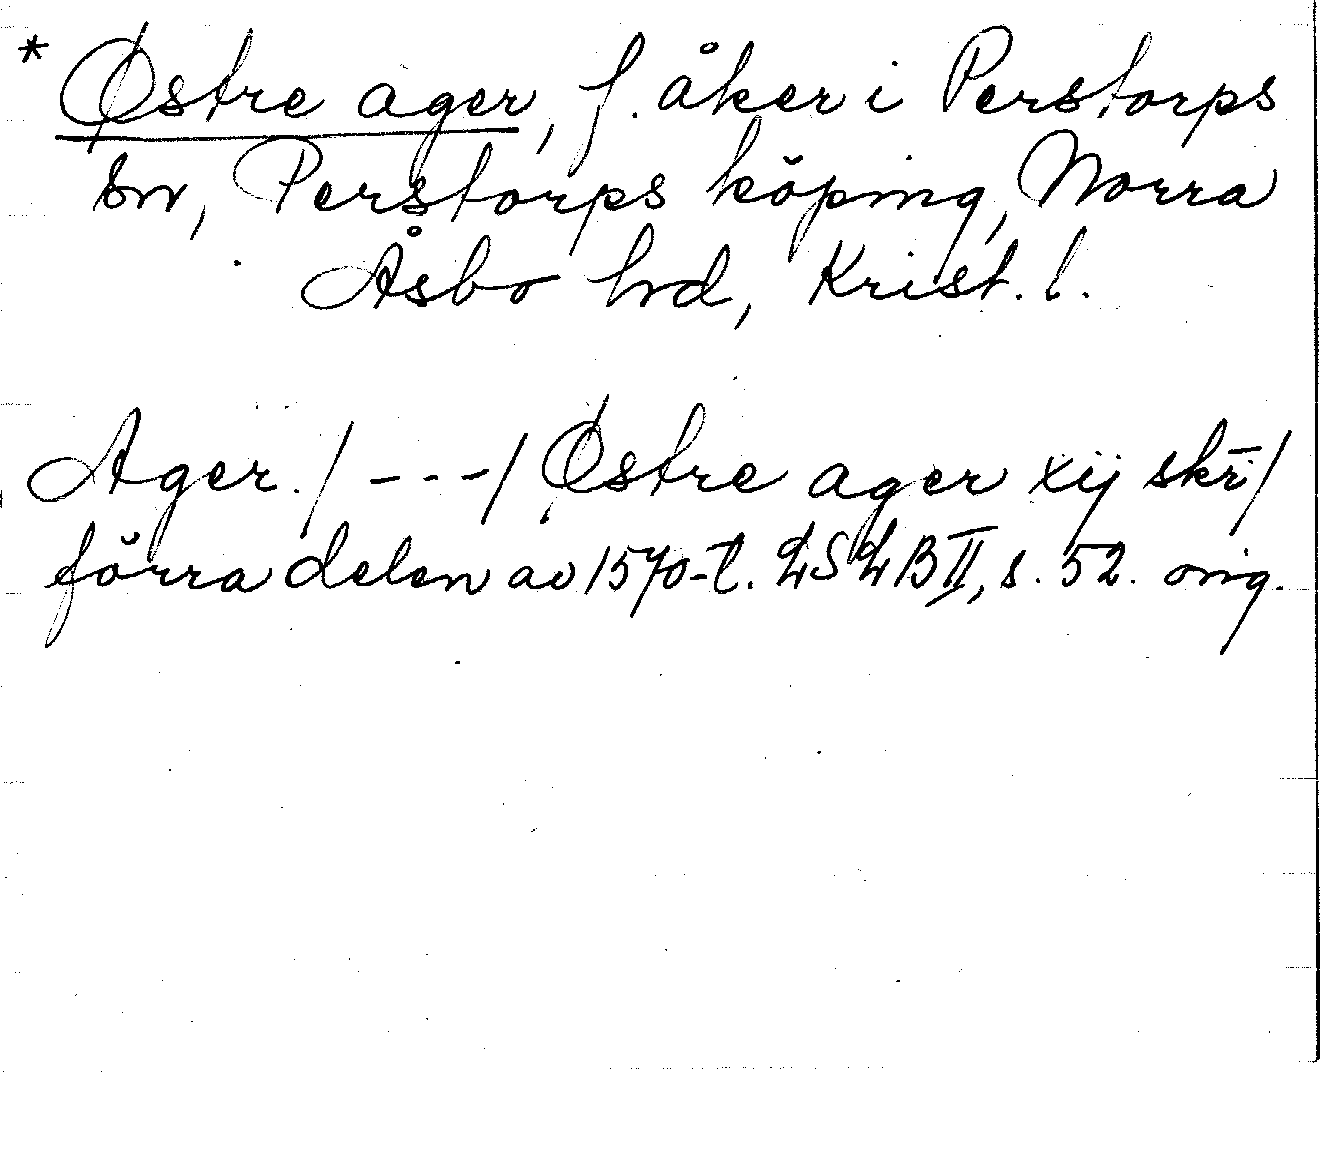 * Østre ager, f. åker i Perstorps
sn, Perstorps köping, Norra
Åsbo hd, Krist. l.
Ager. / - - - / Østre ager xij skr̄ /
förra delen av 1570-t. LSLB II, s. 52. orig.